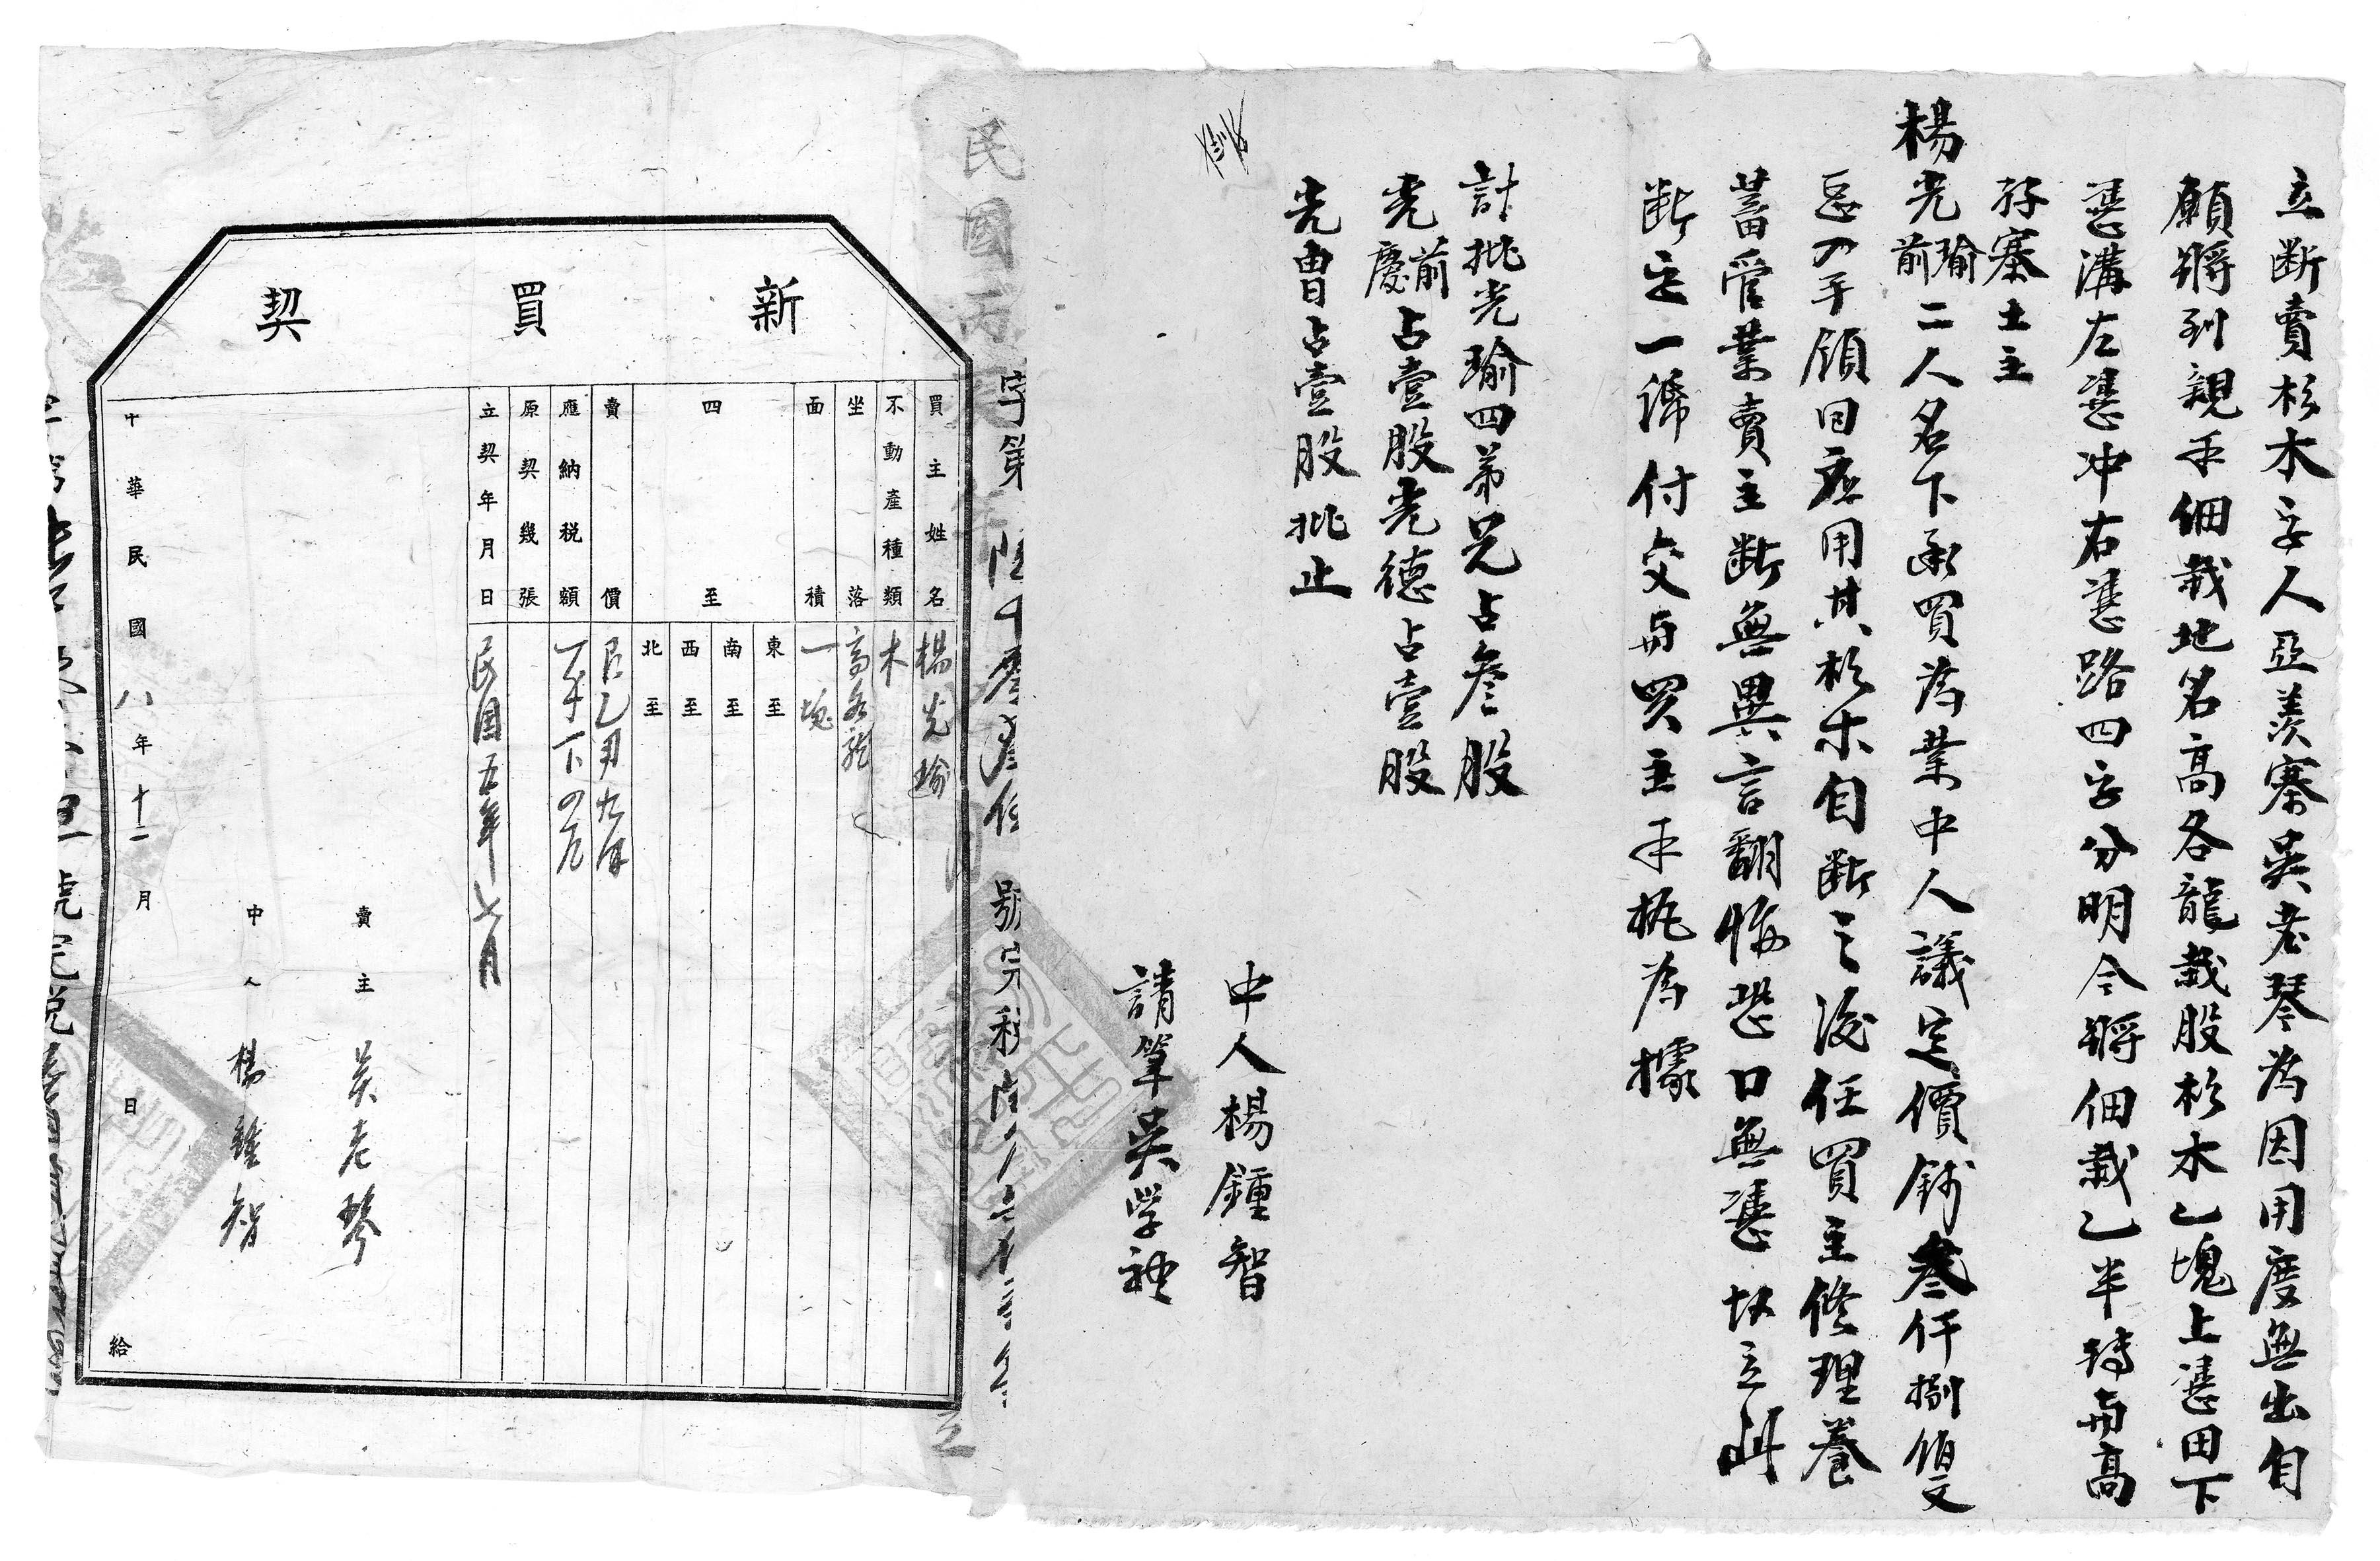 立断賣杉木字人亞羡寨吳老琴為因用度無出自
願將到親手佃栽地名高各龍栽股杉木乙塊上憑田下
憑溝左憑冲右憑路四字分明今將佃栽乙半轉與高
孖寨土主
楊光瑜前二人名下承買為業中人議定價錢叁仟捌佰文
手領回應用其杉木自断之後任買主修理養
蓄管業賣主断無異言翻悔恐口無憑故立此
断字一帋付交與買主手执為據
計批光瑜四弟兄占叁股
光前慶占壹股光德占壹股
光曹占壹股批止
中人楊鍾智
請筆吳学禮
民國丙
字第
號
立
新買契
買主姓名 楊光瑜
不動產種類 木
坐落 高各龍
面積 一塊
四至 東至 南至 西至 北至
賣價
應納税額
原契幾張
立契年月日 民国五年七月
賣主 吴老琴
中人 楊鍾智
中華民國八年十一月 日 給